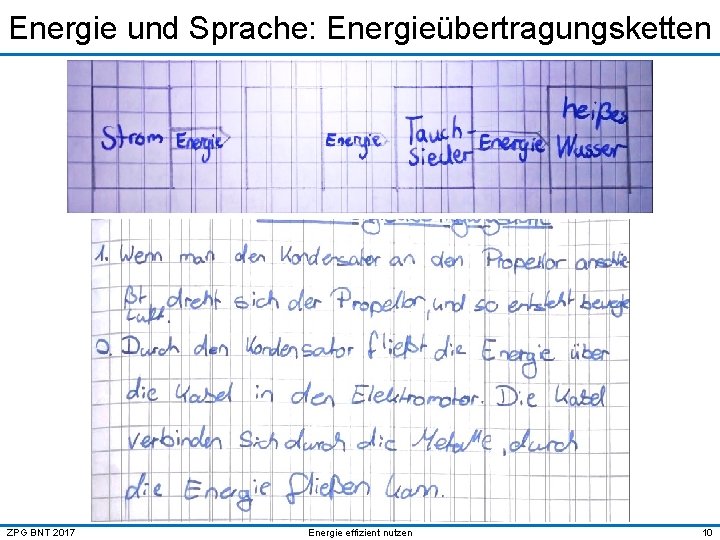 Energie und Sprache: Energieübertragungsketten
Strom Energie Energie Tauch-
sieder Energie heißes
Wasser
1. Wenn man den Kondensator an den Propellor anschlie-
ßt, dreht sich der Propellor, und so entsteht bewegte
Luft.
2. Durch den Kondensator fließt die Energie über
die Kabel in den Elektromotor. Die Kabel
verbinden sich durch die Metalle, durch
die Energie fließen kann.
ZPG BNT 2017 Energie effizient nutzen 10